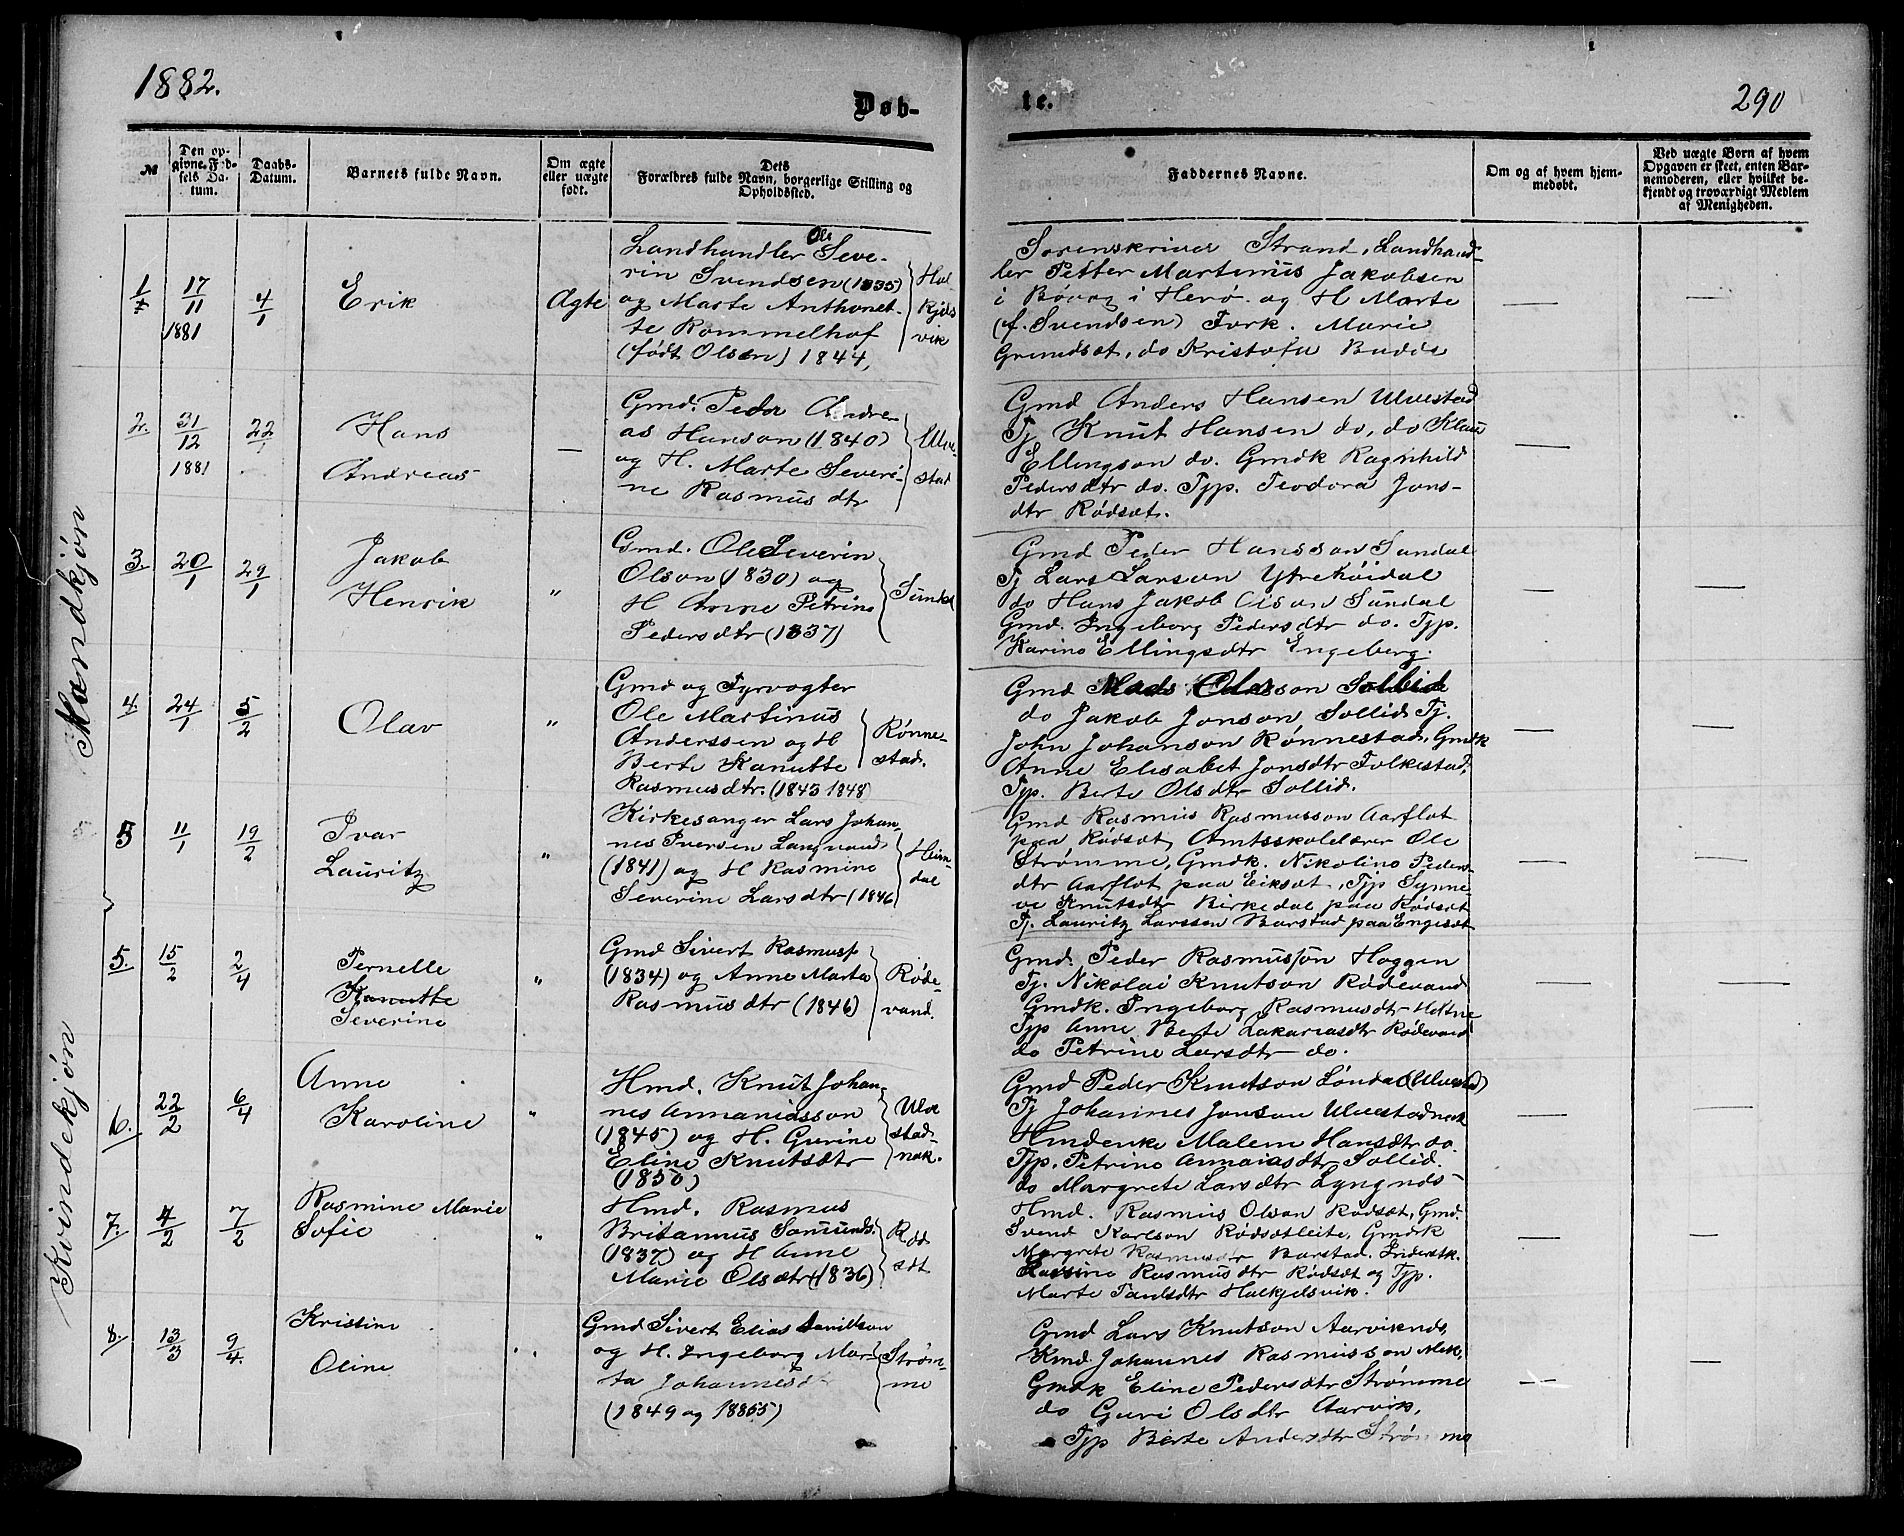 1882.
Døb-
te.
290
№
Den op-
givne Fød-
sels Da-
tum.
Daabs-
Datum.
Barnets fulde Navn.
Om ægte
eller uægte
født.
Dets
Forældres fulde Navn, borgerlige Stilling og
Opholdssted.
Faddernes Navne.
Om og af hvem hjem-
medøbt.
Ved uægte Børn af hvem
Opgaven er skeet, enten Bar-
nemoderen, eller hvilket be-
kjendt og troværdigt Medlem
af Menigheden.
Mandkjøn
1
17/11
1881
4/1
Erik
Ægte
Landhandler Ole Seve-
rin Svendsen (1835)
og Marte Anthonet-
te Rommelhof
(født Olsen) 1844,
Hal
kjels
vik
Sorenskriver Strand, Landhand-
ler Petter Martinus Jakobsen
i Bøvag i Herø og H Marte
(f. Svendsen) Frøk. Marie
Grundset, do Kristofa Budde
2.
31/12
1881
22/1
Hans
Andreas
—
Gmd. Peder Andre-
as Hanson (1840)
og H. Marte Severi-
ne Rasmusdtr
Ulve-
stad
Gmd Anders Hansen Ulvestad
Tj Knut Hansen do, do Klaus
Ellingson do. Gmdk Ragnhild
Pedersdtr do. Tjp. Teodora Jons-
dtr Rødsæt.
3.
20/1
29/1
Jakob
Henrik
"
Gmd. Ole Severin
Olson (1830) og
H Anne Petrine
Pedersdtr (1837)
Sundal
Gmd Peder Hansson Sundal
Tj Lars Larson Ytrehøidal
do Hans Jakob Olson Sundal
Gmd. Ingeborg Pedersdtr do. Tjp.
Karine Ellingsdtr Engeberg.
4.
24/1
5/2
Olav
"
Gmd og Fyrvogter
Ole Martinus
Anderssen og H
Berte Kanutte
Rasmusdtr. (1843 1848)
Rønne-
stad.
Gmd Mads Olsson Sollid
do Jakob Jonson, Sollid Tj.
John Johanson Rønnestad, Gmdk
Anne Elisabet Jonsdtr Folkestad,
Tjp. Berte Olsdtr Sollid.
5
11/1
19/2
Ivar
Lauritz
"
Kirkesanger Lars Johan-
nes Iversen Langvand
(1841) og H Rasmine
Severine Larsdtr (1846
Heim-
dal
Gmd Rasmus Rasmusson Aarflot
paa Rødsæt, Amtsskolelærer Ole
Strømme, Gmdk. Nikoline Peders-
dtr Aarflot paa Eiksæt, Tjp Synne-
ve Knutsdtr Birkedal paa Rødsæt
Tj. Lauritz Larssen Barstad paa Engesæt
Kvindekjøn
5.
15/2
2/4
Pernelle
Kanutte
Severine
"
Gmd Sivert Rasmuss
(1834) og Anne Marta
Rasmusdtr (1846)
Røde-
vand.
Gmd. Peder Rasmusson Haggen
Tj. Nikolai Knutson Rødevand
Gmdk. Ingeborg Rasmusdtr Hattne
Tjp Anne Berte Zakariasdtr Rødevand
do Petrine Larsdtr do.
6.
22/2
6/4
Anne
Karoline
"
Hmd. Knut Johan-
nes Annaniasson
(1845) og H. Gurine
Eline Knutsdtr
(1850)
Ulve
stad-
nak.
Gmd Peder Knutson Løndal (Ulvestad)
Tj Johannes Jonson Ulvestadnak
Hmdenke Malene Hansdtr do
Tjp. Petrine Annaiasdtr Sollid.
do Margrete Larsdtr Lyngnes
7.
4/2
7/2
Rasmine Marie
Sofie
"
Hmd. Rasmus
Britannus Samunds.
(1837) og H Anne
Marie Olsdtr (1836)
Rød
sæt
Hmd. Rasmus Olson Rødsæt, Gmd.
Svend Karlson Rødsætleite, Gmdrk
Margrete Rasmusdtr Barstad. Inderstk.
Rasmus dtr Rødsæt og Tjp.
Marte Paulsdtr Halkjelsvik.
8.
13/3
9/4.
Kristine
Oline
"
Gmd Sivert Elias Davidson
og H. Ingeborg Mar-
ta Johannesdt
(1849 og 1855)
Strøm-
me
Gmd Lars Knutson Aarviknes,
Kmd. Johannes Rasmusson Mek,
Gmdk Eline Pedersdtr Strømme
do Guri Olsdtr Aarvik,
Tjp Berte Andersdtr Strømme